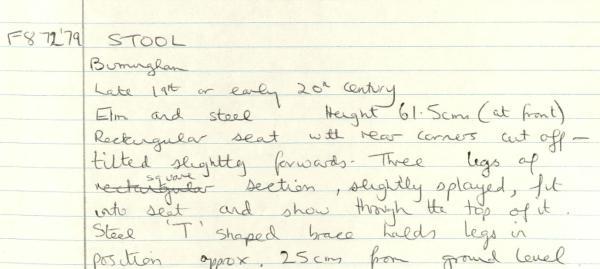 F872'79 STOOL
Birmingham
Late 19th or early 20th century
Elm and steel Height 61.5cms (at front)
Rectangular seat with rear corners cut off –
tilted slightly forwards. Three legs of
square
rectangular section, slightly splayed, fit
into seat and show through the top of it.
Steel 'T' shaped brace holds legs in
position approx. 25cms from ground level.